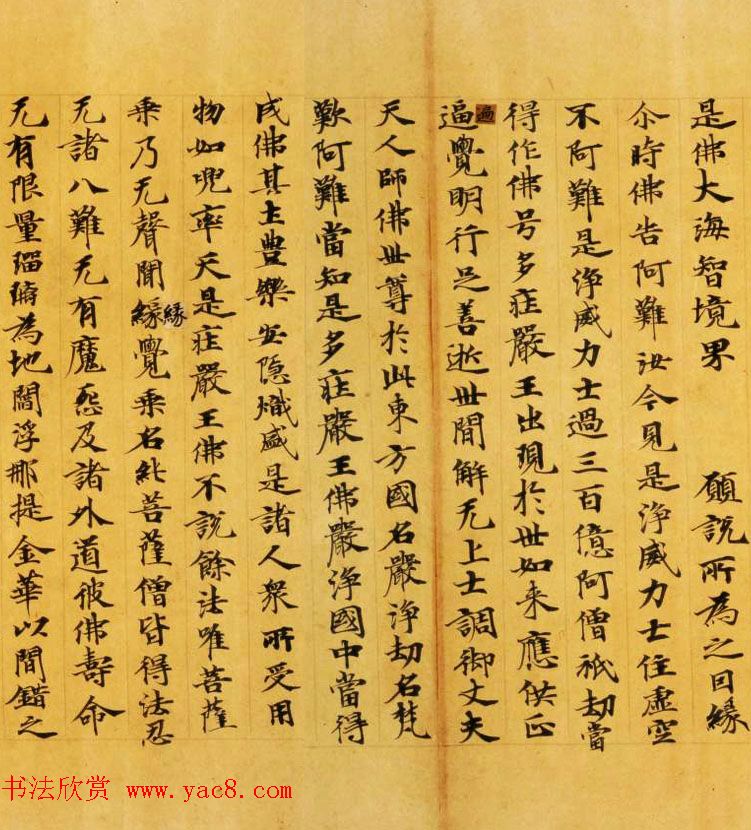 是佛大海智境界 願說所為之因緣
尒時佛告阿難汝今見是淨威力士住虛空
不阿難是淨威力士過三百億阿僧祇劫當
得作佛号多莊嚴王出現於世如来應供正
遍覺明行足善逝世間解无上士調御丈夫
遍
天人師佛世尊於此東方國名嚴淨劫名梵
歎阿難當知是多莊嚴王佛嚴淨國中當得
成佛其土豐樂安隱熾盛是諸人衆所受用
物如兜率天是莊嚴王佛不說餘法唯菩薩
乘乃无聲聞緣覺乘名純菩薩僧皆得法忍
緣
无諸八難无有魔怨及諸外道彼佛壽命
无有限量瑠璃為地閻浮那提金華以間錯之
书法欣赏 www.yac8.com